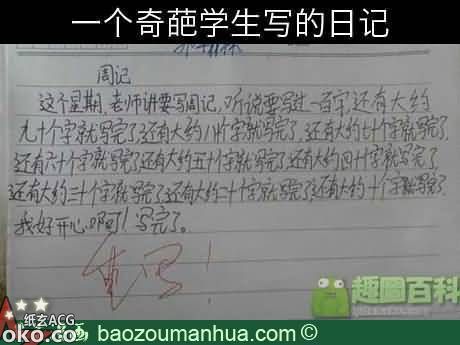 一个奇葩学生写的日记
周记
这个星期,老师讲要写周记,听说要写过一百字还有大约
九十个字就写完了还有大约八十个字就写完了,还有大约七十个字就写完了,
还有六十个字就写完了还有大约五十个字就写完了还有大约四十个字就写完了
还有大约三十个字就写完了还有大约二十个字就写完了,还有大约十个字就写完了,
我好开心啊!写完了。
重写!
趣圖百科
纸玄ACG
oko.co
baozoumanhua.com ©